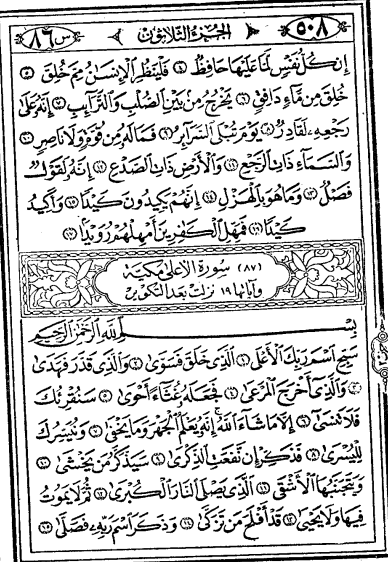 ٥٠٨ الجزء الثلاثون س ٨٦
إِن كُلُّ نَفْسٍ لَّمَّا عَلَيْهَا حَافِظٌ ٤ فَلْيَنظُرِ الْإِنسَٰنُ مِمَّ خُلِقَ ٥
خُلِقَ مِن مَّاءٍ دَافِقٍ ٦ يَخْرُجُ مِنۢ بَيْنِ الصُّلْبِ وَالتَّرَآئِبِ ٧ إِنَّهُۥ عَلَىٰ
رَجْعِهِۦ لَقَادِرٌ ٨ يَوْمَ تُبْلَى السَّرَآئِرُ ٩ فَمَا لَهُۥ مِن قُوَّةٍ وَلَا نَاصِرٍ ١٠
وَالسَّمَآءِ ذَاتِ الرَّجْعِ ١١ وَالْأَرْضِ ذَاتِ الصَّدْعِ ١٢ إِنَّهُۥ لَقَوْلٌ
فَصْلٌ ١٣ وَمَا هُوَ بِالْهَزْلِ ١٤ إِنَّهُمْ يَكِيدُونَ كَيْدًا ١٥ وَأَكِيدُ
كَيْدًا ١٦ فَمَهِّلِ الْكَٰفِرِينَ أَمْهِلْهُمْ رُوَيْدًۢا ١٧
(٨٧) سورة الأعلى مكية
وآياتها ١٩ نزلت بعد التكوير
بِسْمِ اللَّهِ الرَّحْمَٰنِ الرَّحِيمِ
سَبِّحِ اسْمَ رَبِّكَ الْأَعْلَى ١ الَّذِى خَلَقَ فَسَوَّىٰ ٢ وَالَّذِى قَدَّرَ فَهَدَىٰ
٣ وَالَّذِىٓ أَخْرَجَ الْمَرْعَىٰ ٤ فَجَعَلَهُۥ غُثَآءً أَحْوَىٰ ٥ سَنُقْرِئُكَ
فَلَا تَنسَىٰٓ ٦ إِلَّا مَا شَآءَ اللَّهُ إِنَّهُۥ يَعْلَمُ الْجَهْرَ وَمَا يَخْفَىٰ ٧ وَنُيَسِّرُكَ
لِلْيُسْرَىٰ ٨ فَذَكِّرْ إِن نَّفَعَتِ الذِّكْرَىٰ ٩ سَيَذَّكَّرُ مَن يَخْشَىٰ ١٠
وَيَتَجَنَّبُهَا الْأَشْقَى ١١ الَّذِى يَصْلَى النَّارَ الْكُبْرَىٰ ١٢ ثُمَّ لَا يَمُوتُ
فِيهَا وَلَا يَحْيَىٰ ١٣ قَدْ أَفْلَحَ مَن تَزَكَّىٰ ١٤ وَذَكَرَ اسْمَ رَبِّهِۦ فَصَلَّىٰ ١٥